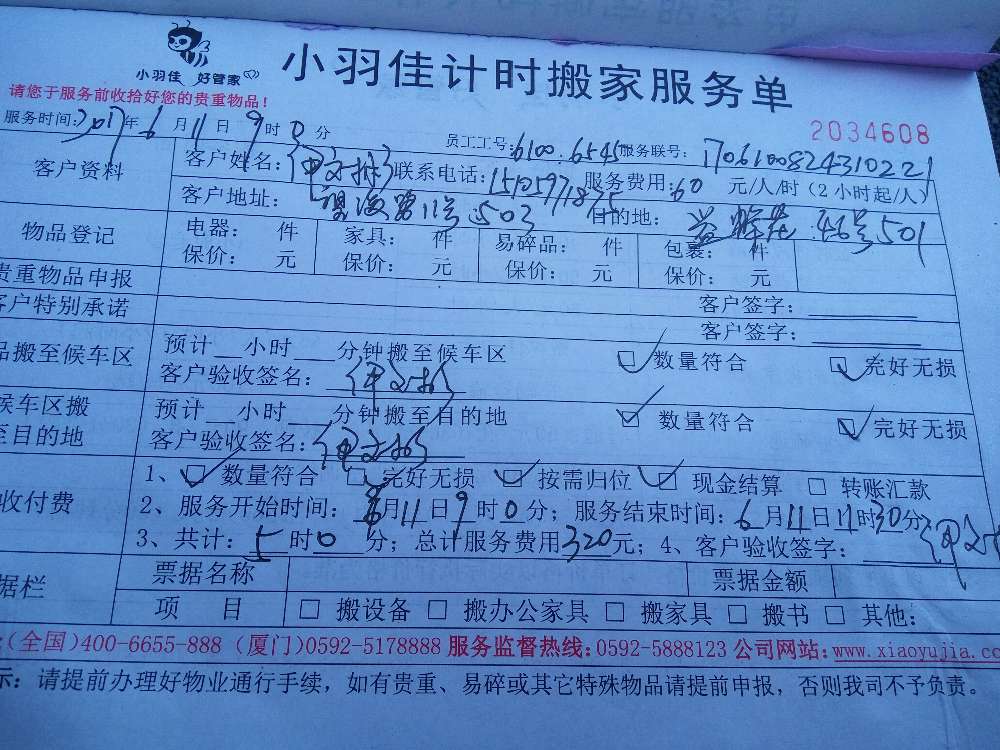 小羽佳 好管家
小羽佳计时搬家服务单
请您于服务前收拾好您的贵重物品!
2034608
服务时间:2017年6月11日9时0分 员工工号:6100.6545 服务联号:1706100824310221
客户资料 客户姓名: 联系电话:15105971875 服务费用:60 元/人/时(2小时起/人)
客户地址: 望海路11号.503 目的地: 46号501
物品登记 电器: 件 家具: 件 易碎品: 件 包裹: 件
保价: 元 保价: 元 保价: 元 保价: 元
贵重物品申报 客户签字:
客户特别承诺 客户签字:
品搬至候车区 预计 小时 分钟搬至候车区 数量符合 完好无损
客户验收签名:
候车区搬 预计 小时 分钟搬至目的地 数量符合 完好无损
至目的地 客户验收签名:
收付费 1、 数量符合 完好无损 按需归位 现金结算 转账汇款
2、服务开始时间:6月11日9时0分;服务结束时间:6月11日11时30分
3、共计:5时0分;总计服务费用320元;4、客户验收签字:
据栏 票据名称 票据金额
项 目 搬设备 搬办公家具 搬家具 搬书 其他:
(全国)400-6655-888 (厦门)0592-5178888 服务监督热线:0592-5888123 公司网站:www.xiaoyujia.co
示:请提前办理好物业通行手续,如有贵重、易碎或其它特殊物品请提前申报,否则我司不予负责。